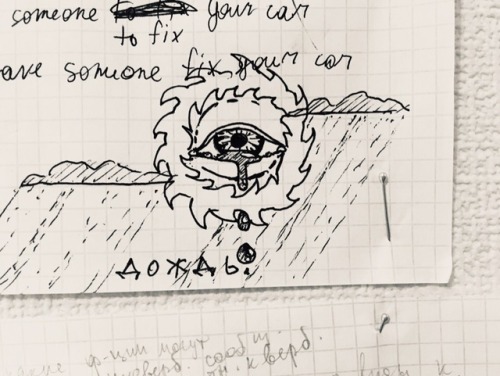 someone to fix your car
to fix
ave someone fix your car
дождь.
ф-ции могут сообщ.
верб.